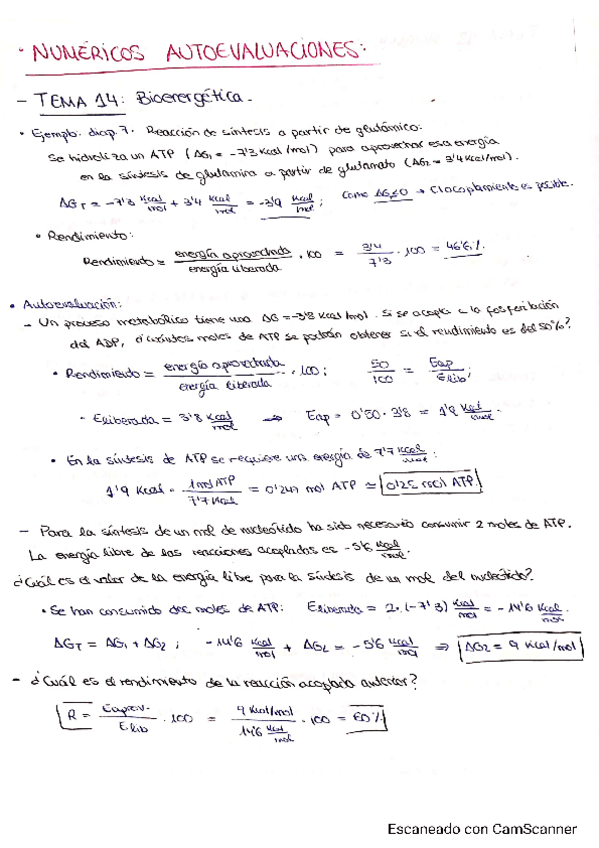 · NUMÉRICOS AUTOEVALUACIONES:
- TEMA 14: Bioenergética.
• Ejemplo: diap. 7. Reacción de síntesis a partir de glutámico:
Se hidroliza un ATP (ΔG₁ = -7'3 Kcal/mol) para aprovechar esa energía
en la síntesis de glutamina a partir de glutamato (ΔG₂ = 3'4 Kcal/mol).
ΔG_T = -7'3 Kcal/mol + 3'4 Kcal/mol = -3'9 Kcal/mol ; Como ΔG<0 → El acoplamiento es posible.
• Rendimiento:
Rendimiento = energía aprovechada / energía liberada · 100 = 3'4 / 7'3 · 100 = 46'6%.
• Autoevaluación:
- Un proceso metabólico tiene una ΔG = -3'8 Kcal/mol. Si se acopla a la fosforilación
del ADP, ¿cuántos moles de ATP se podrán obtener si el rendimiento es del 50%?
• Rendimiento = energía aprovechada / energía liberada · 100 ; 50/100 = Eap/Elib ;
- Eliberada = 3'8 Kcal/mol → Eap = 0'50 · 3'8 = 1'9 Kcal/mol.
• En la síntesis de ATP se requiere una energía de 7'7 Kcal/mol :
1'9 Kcal · 1 mol ATP / 7'7 Kcal = 0'247 mol ATP ≃ 0'25 mol ATP
- Para la síntesis de un mol de nucleótido ha sido necesario consumir 2 moles de ATP.
La energía libre de las reacciones acopladas es -5'6 Kcal/mol.
¿Cuál es el valor de la energía libre para la síntesis de un mol del nucleótido?
• Se han consumido dos moles de ATP: Eliberada = 2·(-7'3) Kcal/mol = -14'6 Kcal/mol.
ΔG_T = ΔG₁ + ΔG₂ ; -14'6 Kcal/mol + ΔG₂ = -5'6 Kcal/mol ⇒ ΔG₂ = 9 Kcal/mol
- ¿Cuál es el rendimiento de la reacción acoplada anterior?
R = Eaprov. / Elib · 100 = 9 Kcal/mol / 14'6 Kcal/mol · 100 = 60%
Escaneado con CamScanner